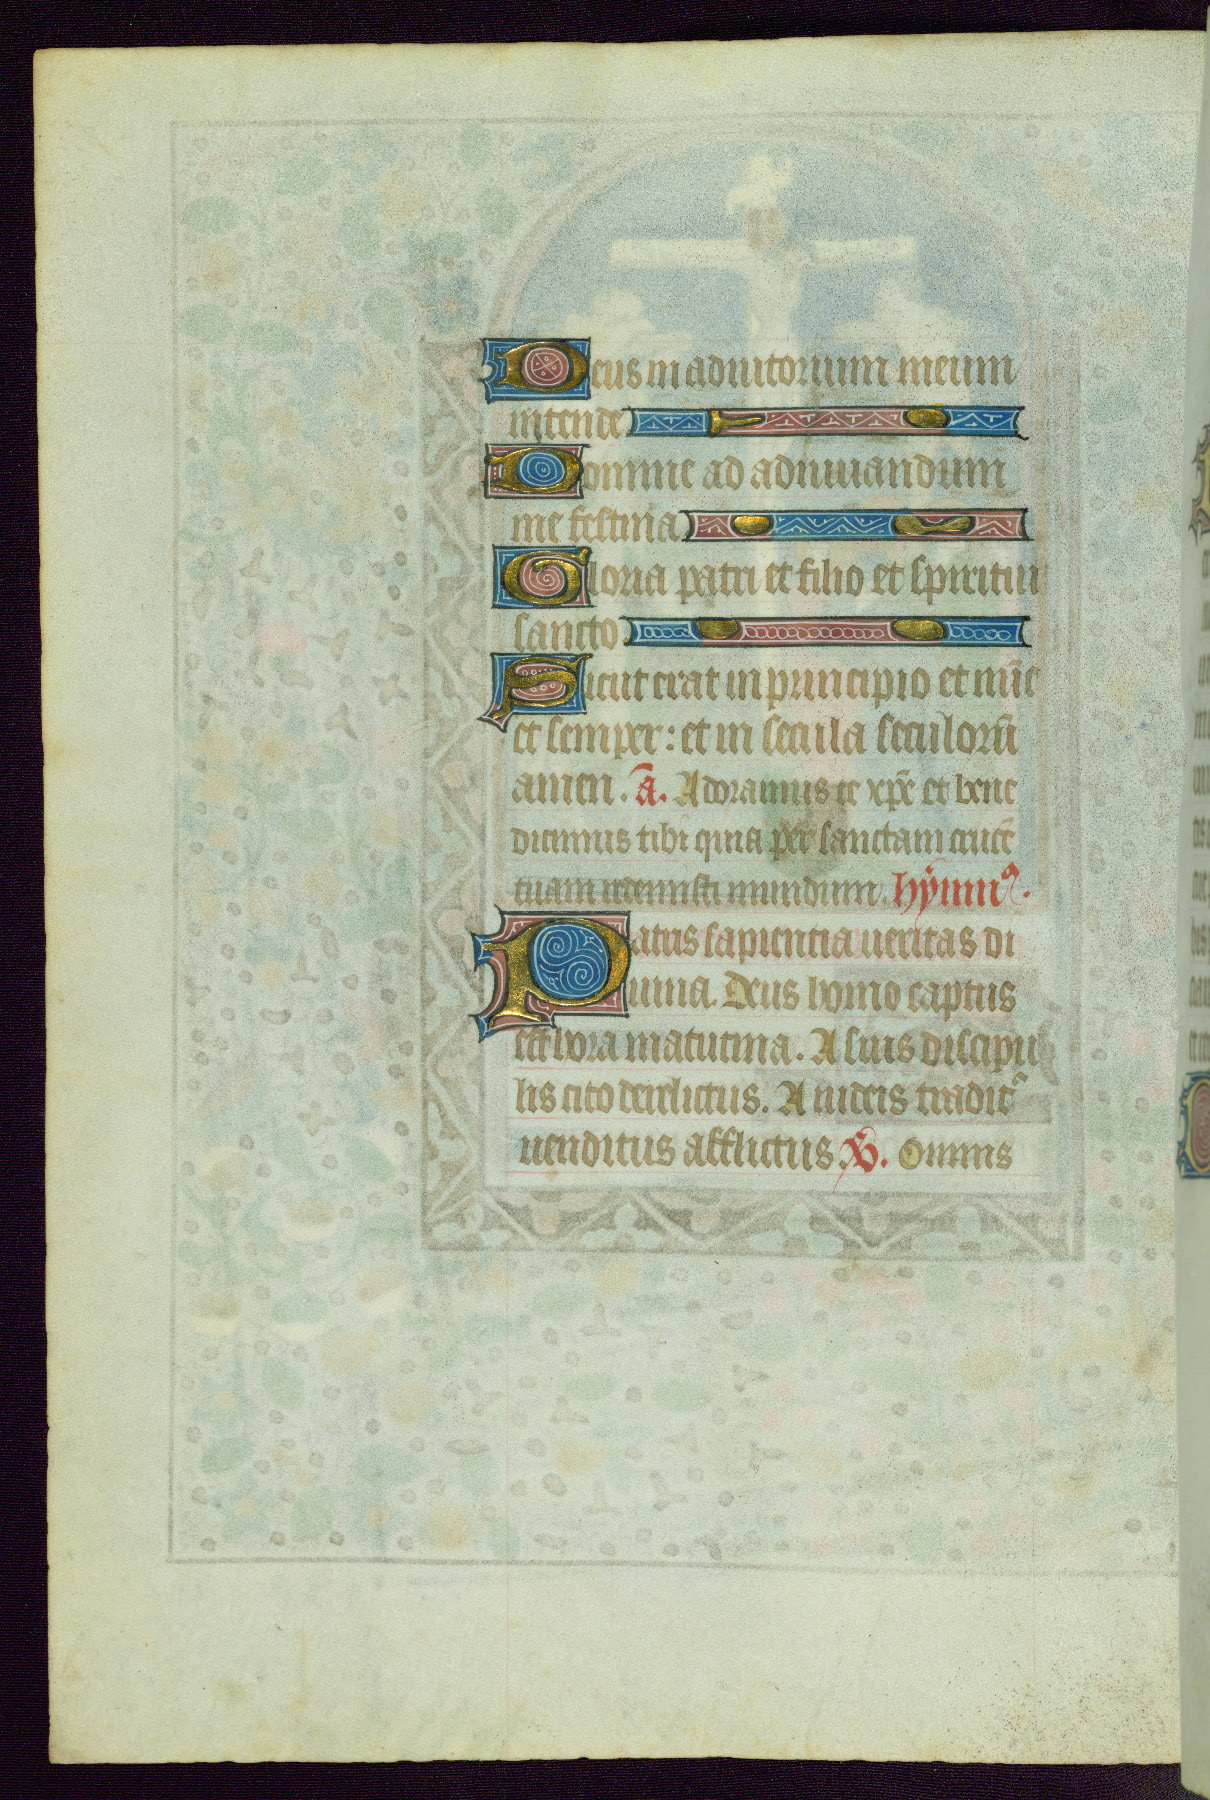 Deus in adiutorium meum
intende
Domine ad adiuuandum
me festina
Gloria patri et filio et spiritui
sancto
Sicut erat in principio et nūc
et semper: et in secula seculorū
amen. ā. Adoramus te xp̄e et bene
dicimus tibi quia per sanctam crucē
tuam redemisti mundum. hymnꝰ.
Patris sapientia ueritas di
uina. Deus homo captus
est hora matutina. A suis discipu
lis cito derelictus. A iudeis tradit᷒
uenditus afflictus. ℣. Omnis